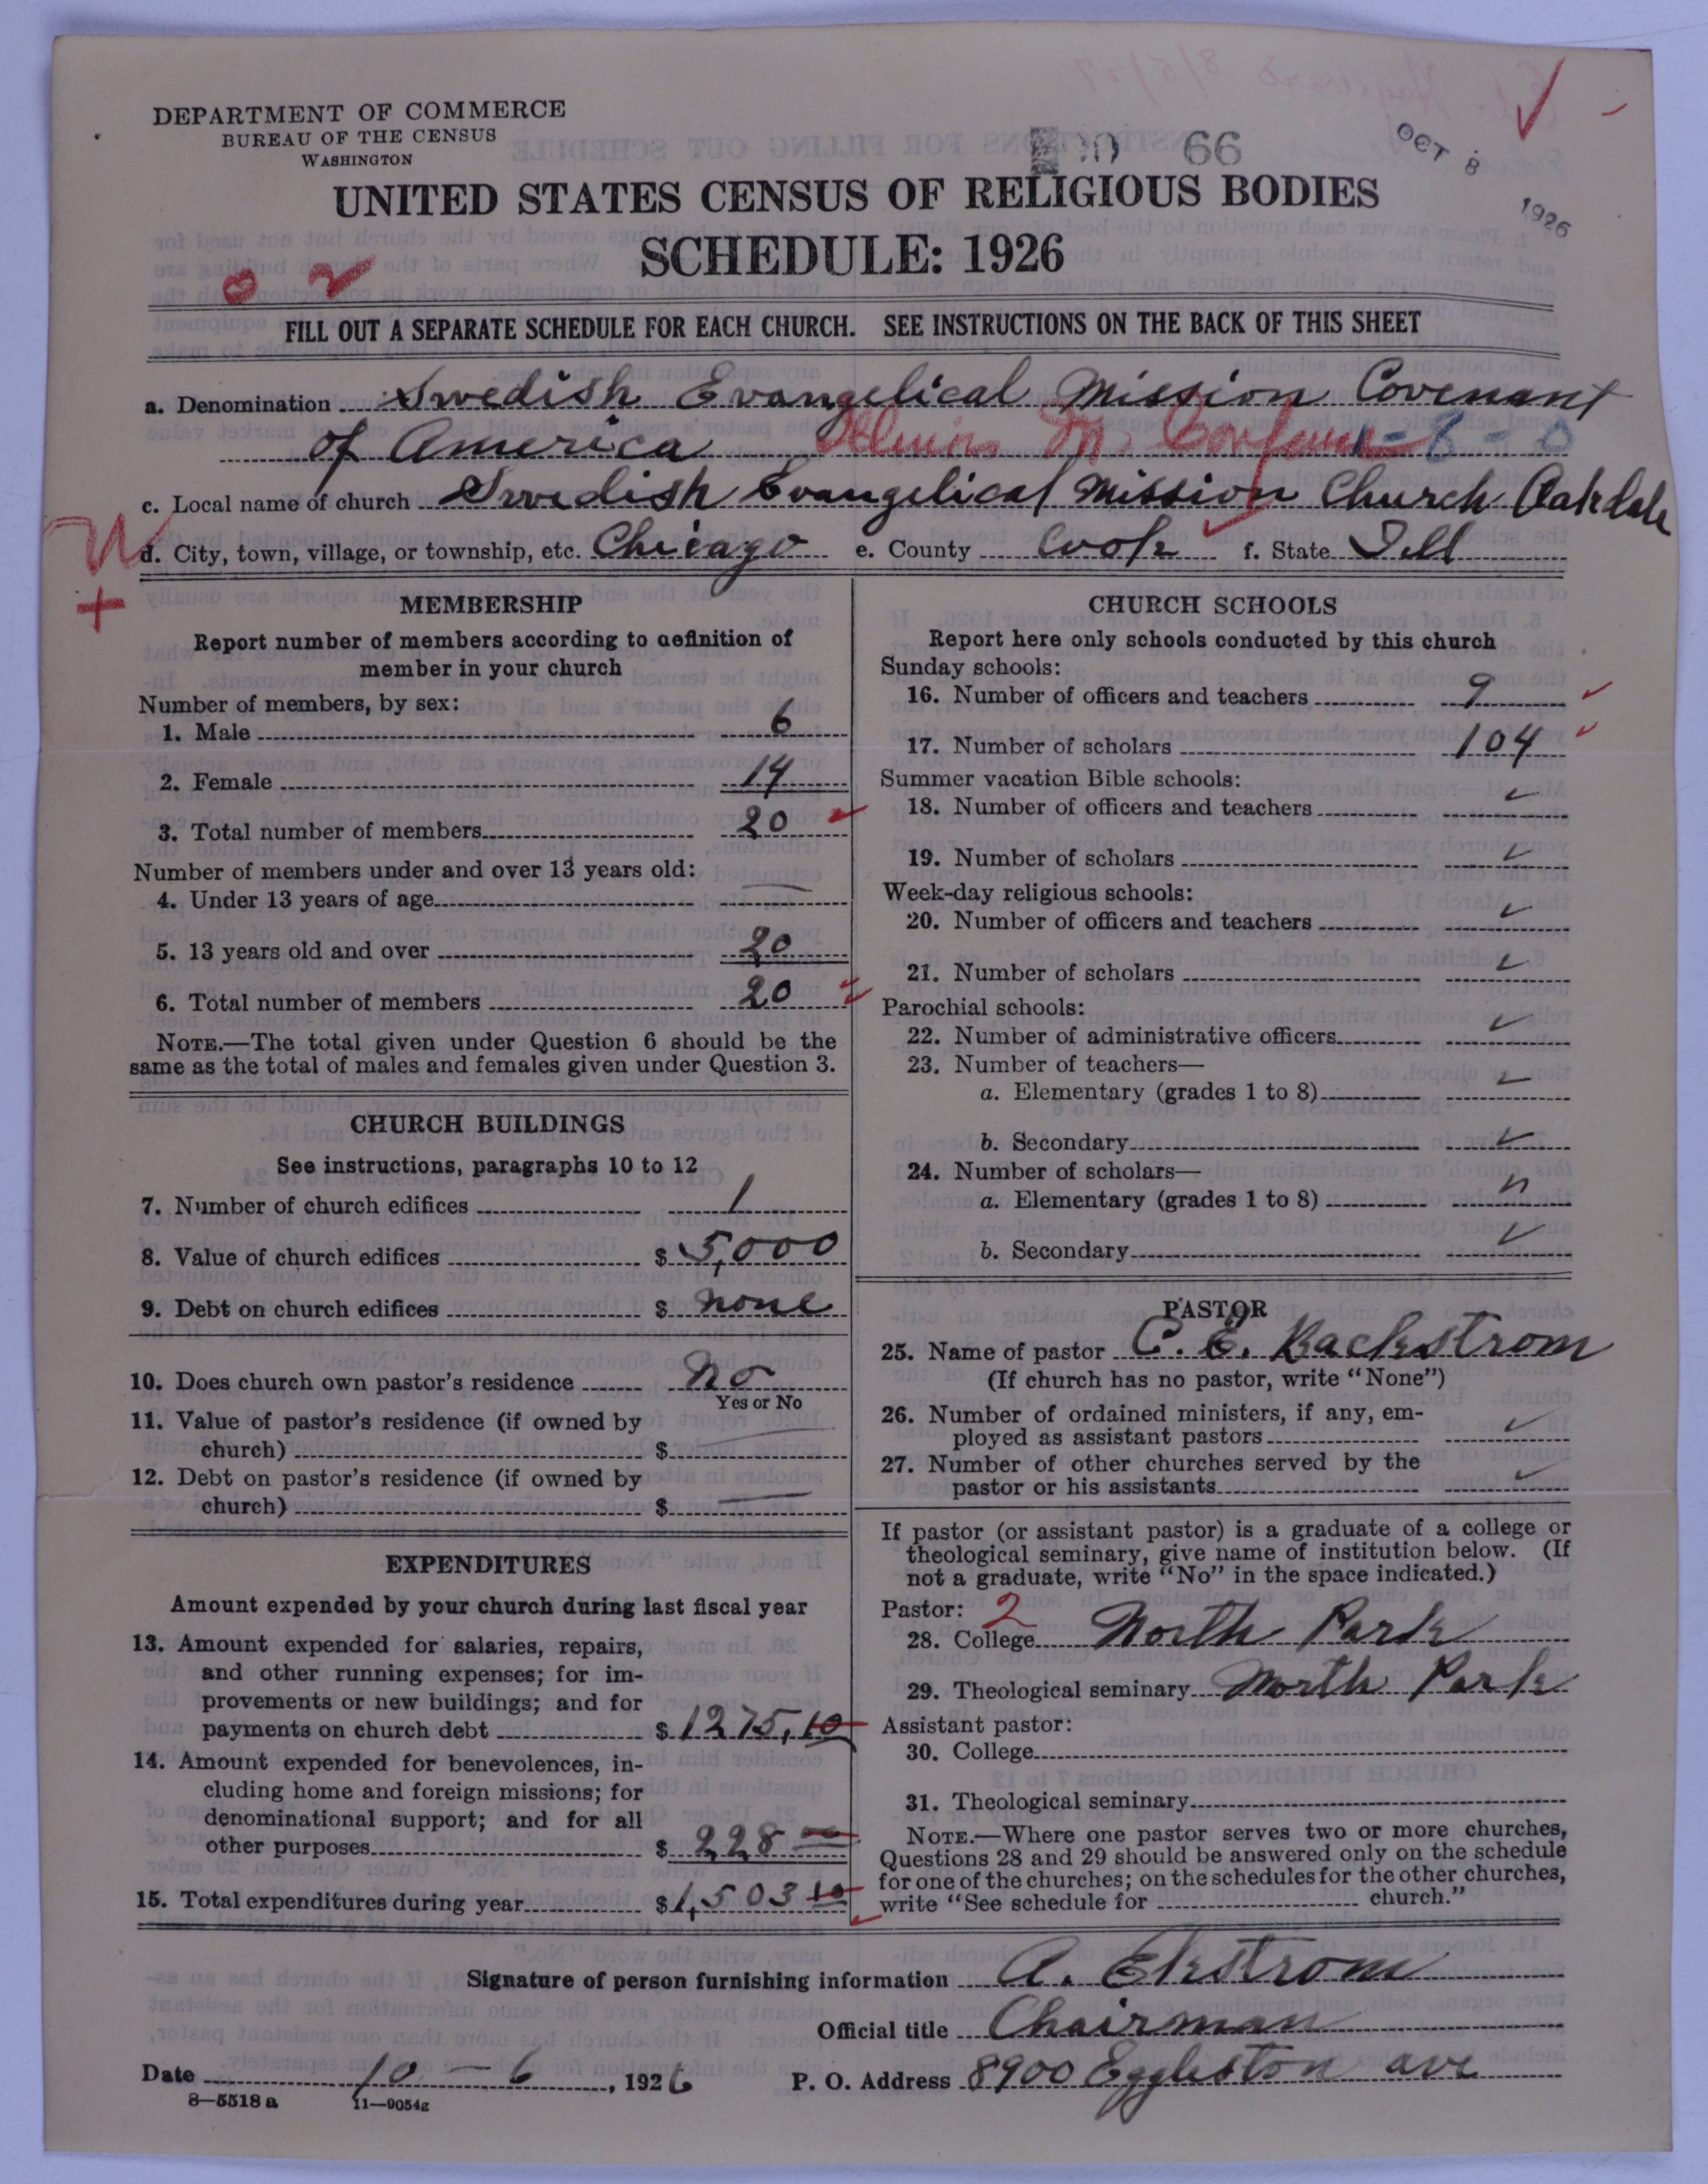 DEPARTMENT OF COMMERCE
BUREAU OF THE CENSUS
WASHINGTON
66
OCT 8 1926
UNITED STATES CENSUS OF RELIGIOUS BODIES
SCHEDULE: 1926
FILL OUT A SEPARATE SCHEDULE FOR EACH CHURCH. SEE INSTRUCTIONS ON THE BACK OF THIS SHEET
a. Denomination Swedish Evangelical Mission Covenant
of America
c. Local name of church Swedish Evangelical Mission Church Oakdale
d. City, town, village, or township, etc. Chicago e. County Cook f. State Ill
MEMBERSHIP
Report number of members according to definition of
member in your church
Number of members, by sex:
1. Male 6
2. Female 14
3. Total number of members 20
Number of members under and over 13 years old:
4. Under 13 years of age —
5. 13 years old and over 20
6. Total number of members 20
NOTE.—The total given under Question 6 should be the
same as the total of males and females given under Question 3.
CHURCH BUILDINGS
See instructions, paragraphs 10 to 12
7. Number of church edifices 1
8. Value of church edifices $ 5,000
9. Debt on church edifices $ none
10. Does church own pastor's residence no
Yes or No
11. Value of pastor's residence (if owned by
church) $ —
12. Debt on pastor's residence (if owned by
church) $ —
EXPENDITURES
Amount expended by your church during last fiscal year
13. Amount expended for salaries, repairs,
and other running expenses; for im-
provements or new buildings; and for
payments on church debt $ 1275,10
14. Amount expended for benevolences, in-
cluding home and foreign missions; for
denominational support; and for all
other purposes $ 228 —
15. Total expenditures during year $ 1,503 10
CHURCH SCHOOLS
Report here only schools conducted by this church
Sunday schools:
16. Number of officers and teachers 9
17. Number of scholars 104
Summer vacation Bible schools:
18. Number of officers and teachers ✓
19. Number of scholars ✓
Week-day religious schools:
20. Number of officers and teachers ✓
21. Number of scholars ✓
Parochial schools:
22. Number of administrative officers ✓
23. Number of teachers—
a. Elementary (grades 1 to 8) ✓
b. Secondary ✓
24. Number of scholars—
a. Elementary (grades 1 to 8)
b. Secondary ✓
PASTOR
25. Name of pastor C. E. Backstrom
(If church has no pastor, write "None")
26. Number of ordained ministers, if any, em-
ployed as assistant pastors ✓
27. Number of other churches served by the
pastor or his assistants ✓
If pastor (or assistant pastor) is a graduate of a college or
theological seminary, give name of institution below. (If
not a graduate, write "No" in the space indicated.)
Pastor: 2
28. College North Park
29. Theological seminary North Park
Assistant pastor:
30. College
31. Theological seminary
NOTE.—Where one pastor serves two or more churches,
Questions 28 and 29 should be answered only on the schedule
for one of the churches; on the schedules for the other churches,
write "See schedule for church."
Signature of person furnishing information A. Ekstrom
Official title Chairman
Date 10 - 6, 1926 P. O. Address 8900 Eggleston ave
8—5518 a 11—9054g